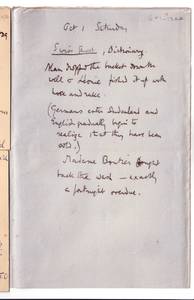 Oct 1 Saturday
Dictionary
Man dropped the bucket down the
well & Howie fished it up with
hose and rake.
(Germans enter Sudenland and
English gradually begin to
realize that they have been
sold.)
Madame brought
back the wash — exactly
a fortnight overdue.